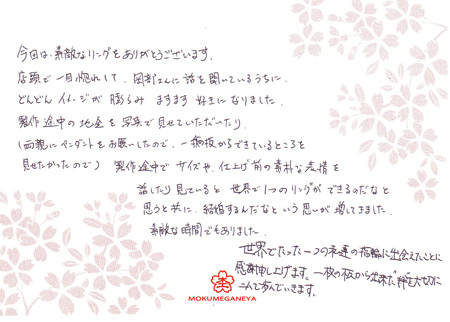 今回は、素敵なリングをありがとうございます。
店頭で一目惚れして、岡部さんに話を聞いているうちに、
どんどんイメージが膨らみ ますます好きになりました。
製作途中の地金を写真で見せていただいたり、
(両親にペンダントをお願いしたので、一枚板からできているところを
見せたかったので) 製作途中でサイズや、仕上げ前の素朴な表情を
話したり見ていると 世界で1つのリングができるのだなと
思うと共に、結婚するんだなという思いが増してきました。
素敵な時間でもありました。
世界でたった一つの木目の指輪に出会えたことに
感謝申し上げます。一枚の板から出来た"絆"を大切に
二人で歩んでいきます。
MOKUMEGANEYA